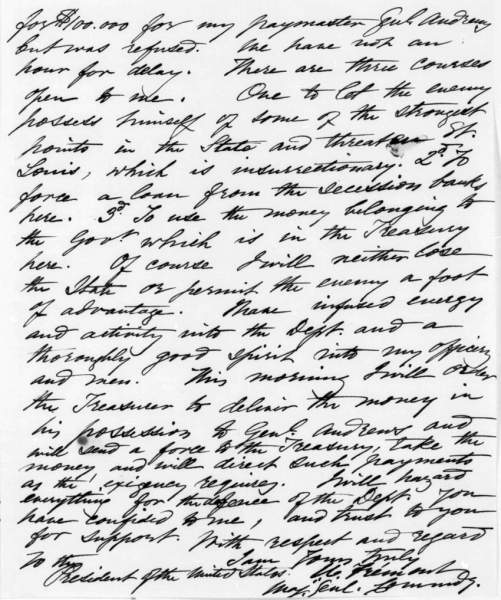 for $100.000 for my paymaster Genl. Andrews
but was refused. We have not an
hour for delay. There are three courses
open to me. One to let the enemy
possess himself of some of the strongest
points in the State and threaten St.
Louis, which is insurrectionary. 2d. To
force a loan from the secession banks
here. 3d. To use the money belonging to
the Govt. which is in the Treasury
here. Of course I will neither lose
the State or permit the enemy a foot
of advantage. I have infused energy
and activity into the Dept. and a
thoroughly good spirit into my officers
and men. This morning I will order
the Treasurer to deliver the money in
his possession to Genl. Andrews and
will send a force to the Treasury, take the
money and will direct such payments
as the exigency requires. I will hazard
everything for the defence of the Dept. you
have confided to me, and trust to you
for support. With respect and regard
I am Yours truly
To the
President of the United States.
J. C. Fremont
Maj. Genl. Commdg.